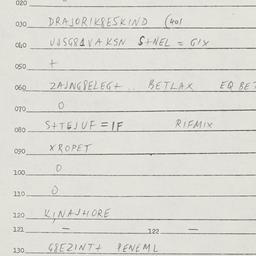 020
030 DRAJORIK8ESKIND (401
040 UJSGRAVAKSN S+NEL = GIX
050 +
060 ZAJNG8ELEG+ .. BETLAX EQ BET
070 O
080 S+TEJUF = IF RIFMIX
090 XROPET
100 O
110 O
120 KINAJHORE
121 — 122 —
130 G8EZINT+ PENEML